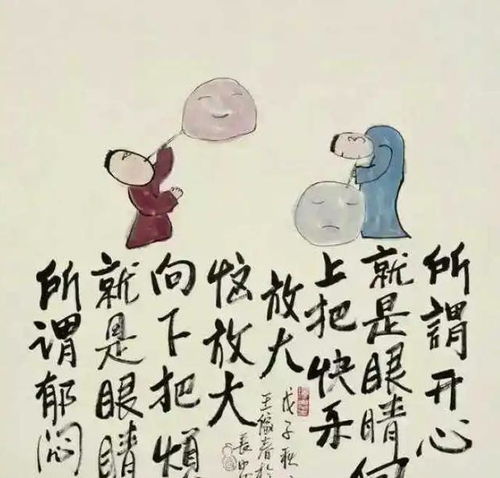 所謂开心
就是眼睛向
上把快乐
放大
所谓郁闷
就是眼睛
向下把煩
恼放大
戊子秋